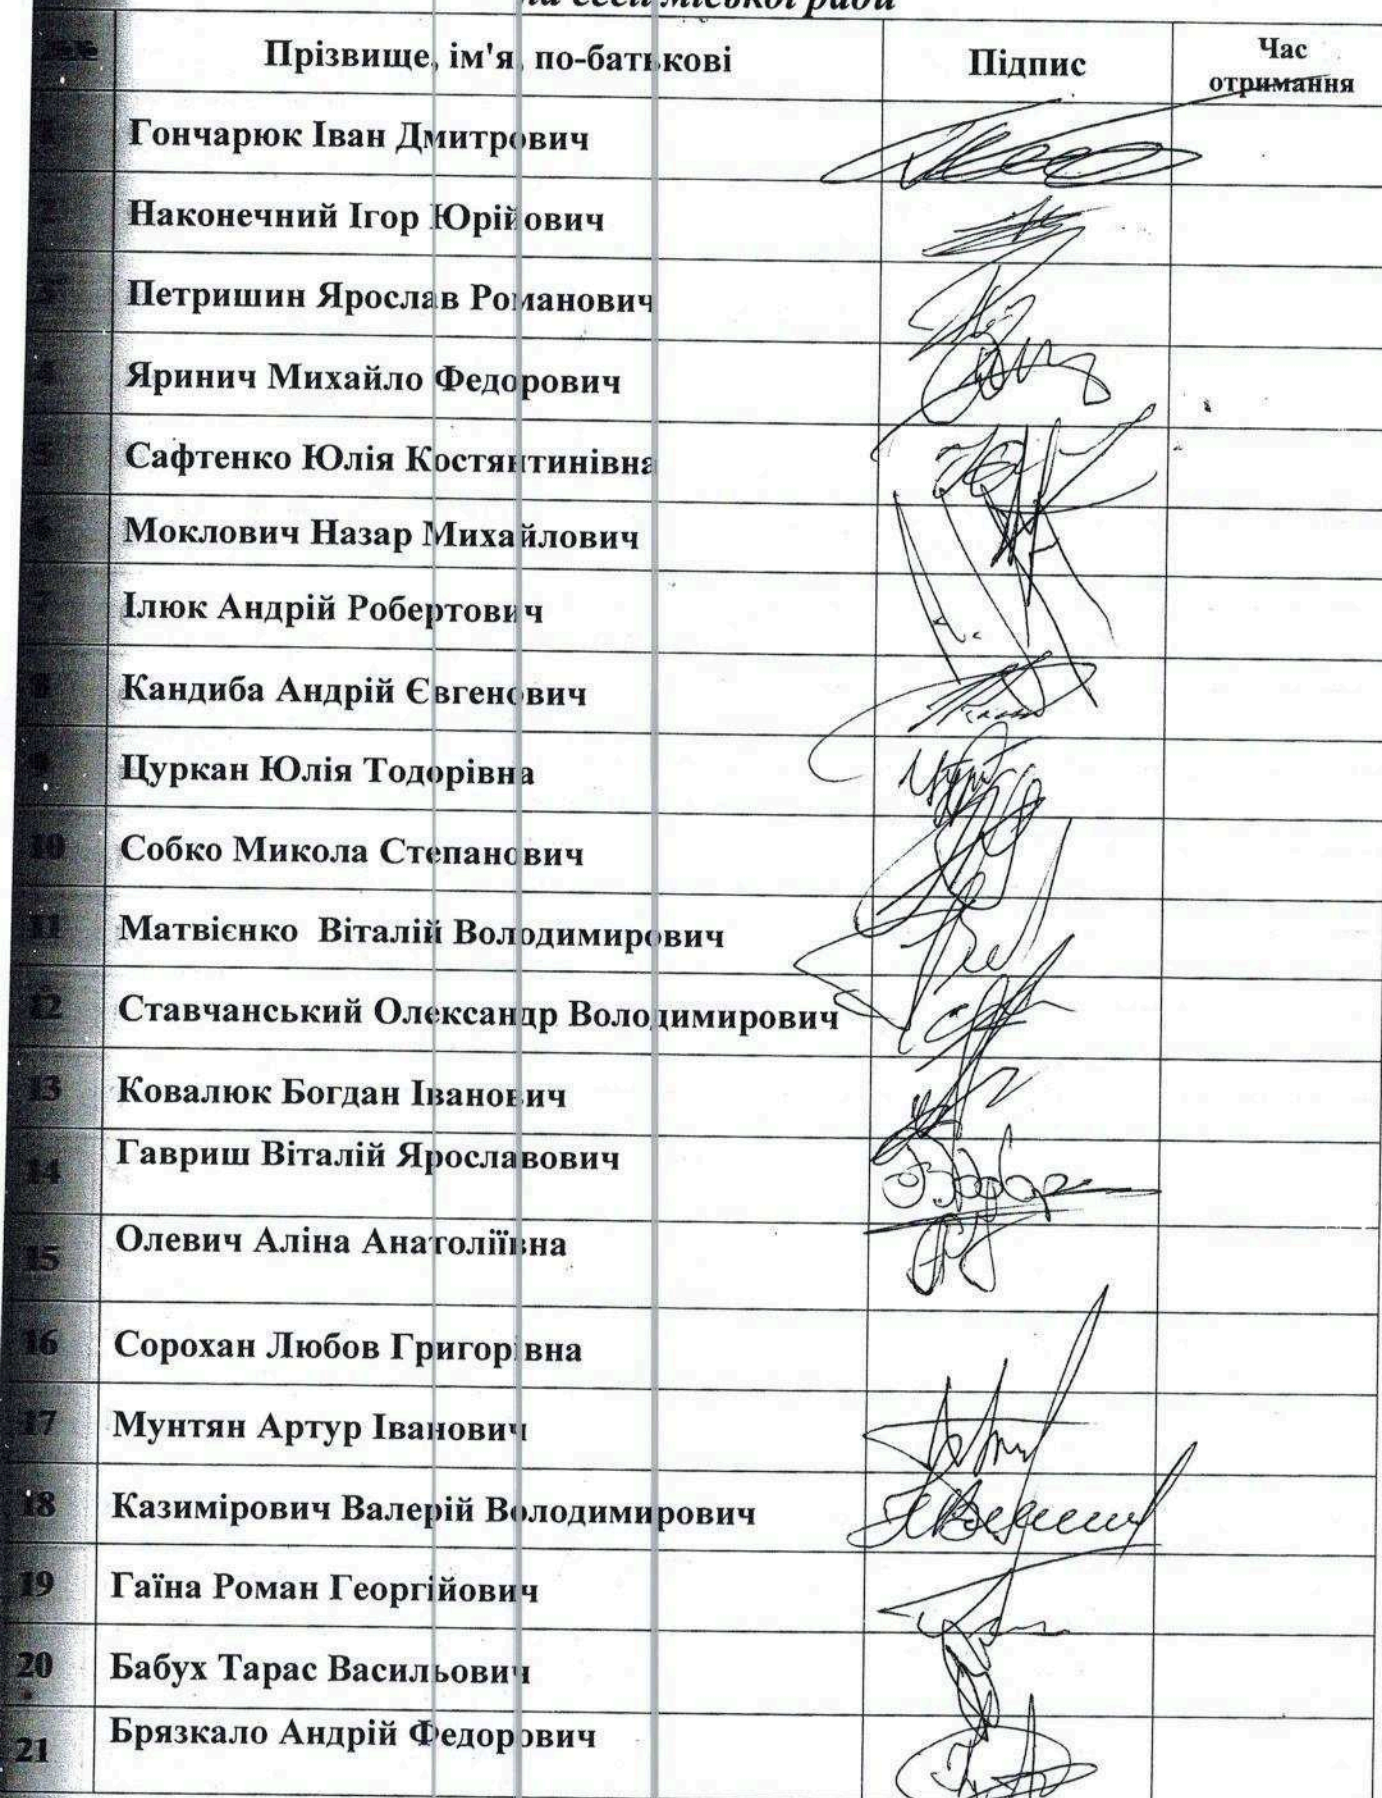 міської ради
Прізвище, ім'я, по-батькові Підпис Час отримання
1 Гончарюк Іван Дмитрович
2 Наконечний Ігор Юрійович
3 Петришин Ярослав Романович
4 Яринич Михайло Федорович
5 Сафтенко Юлія Костянтинівна
6 Моклович Назар Михайлович
7 Ілюк Андрій Робертович
8 Кандиба Андрій Євгенович
9 Цуркан Юлія Тодорівна
10 Собко Микола Степанович
11 Матвієнко Віталій Володимирович
12 Ставчанський Олександр Володимирович
13 Ковалюк Богдан Іванович
14 Гавриш Віталій Ярославович
15 Олевич Аліна Анатоліївна
16 Сорохан Любов Григорівна
17 Мунтян Артур Іванович
18 Казимірович Валерій Володимирович
19 Гаїна Роман Георгійович
20 Бабух Тарас Васильович
21 Брязкало Андрій Федорович